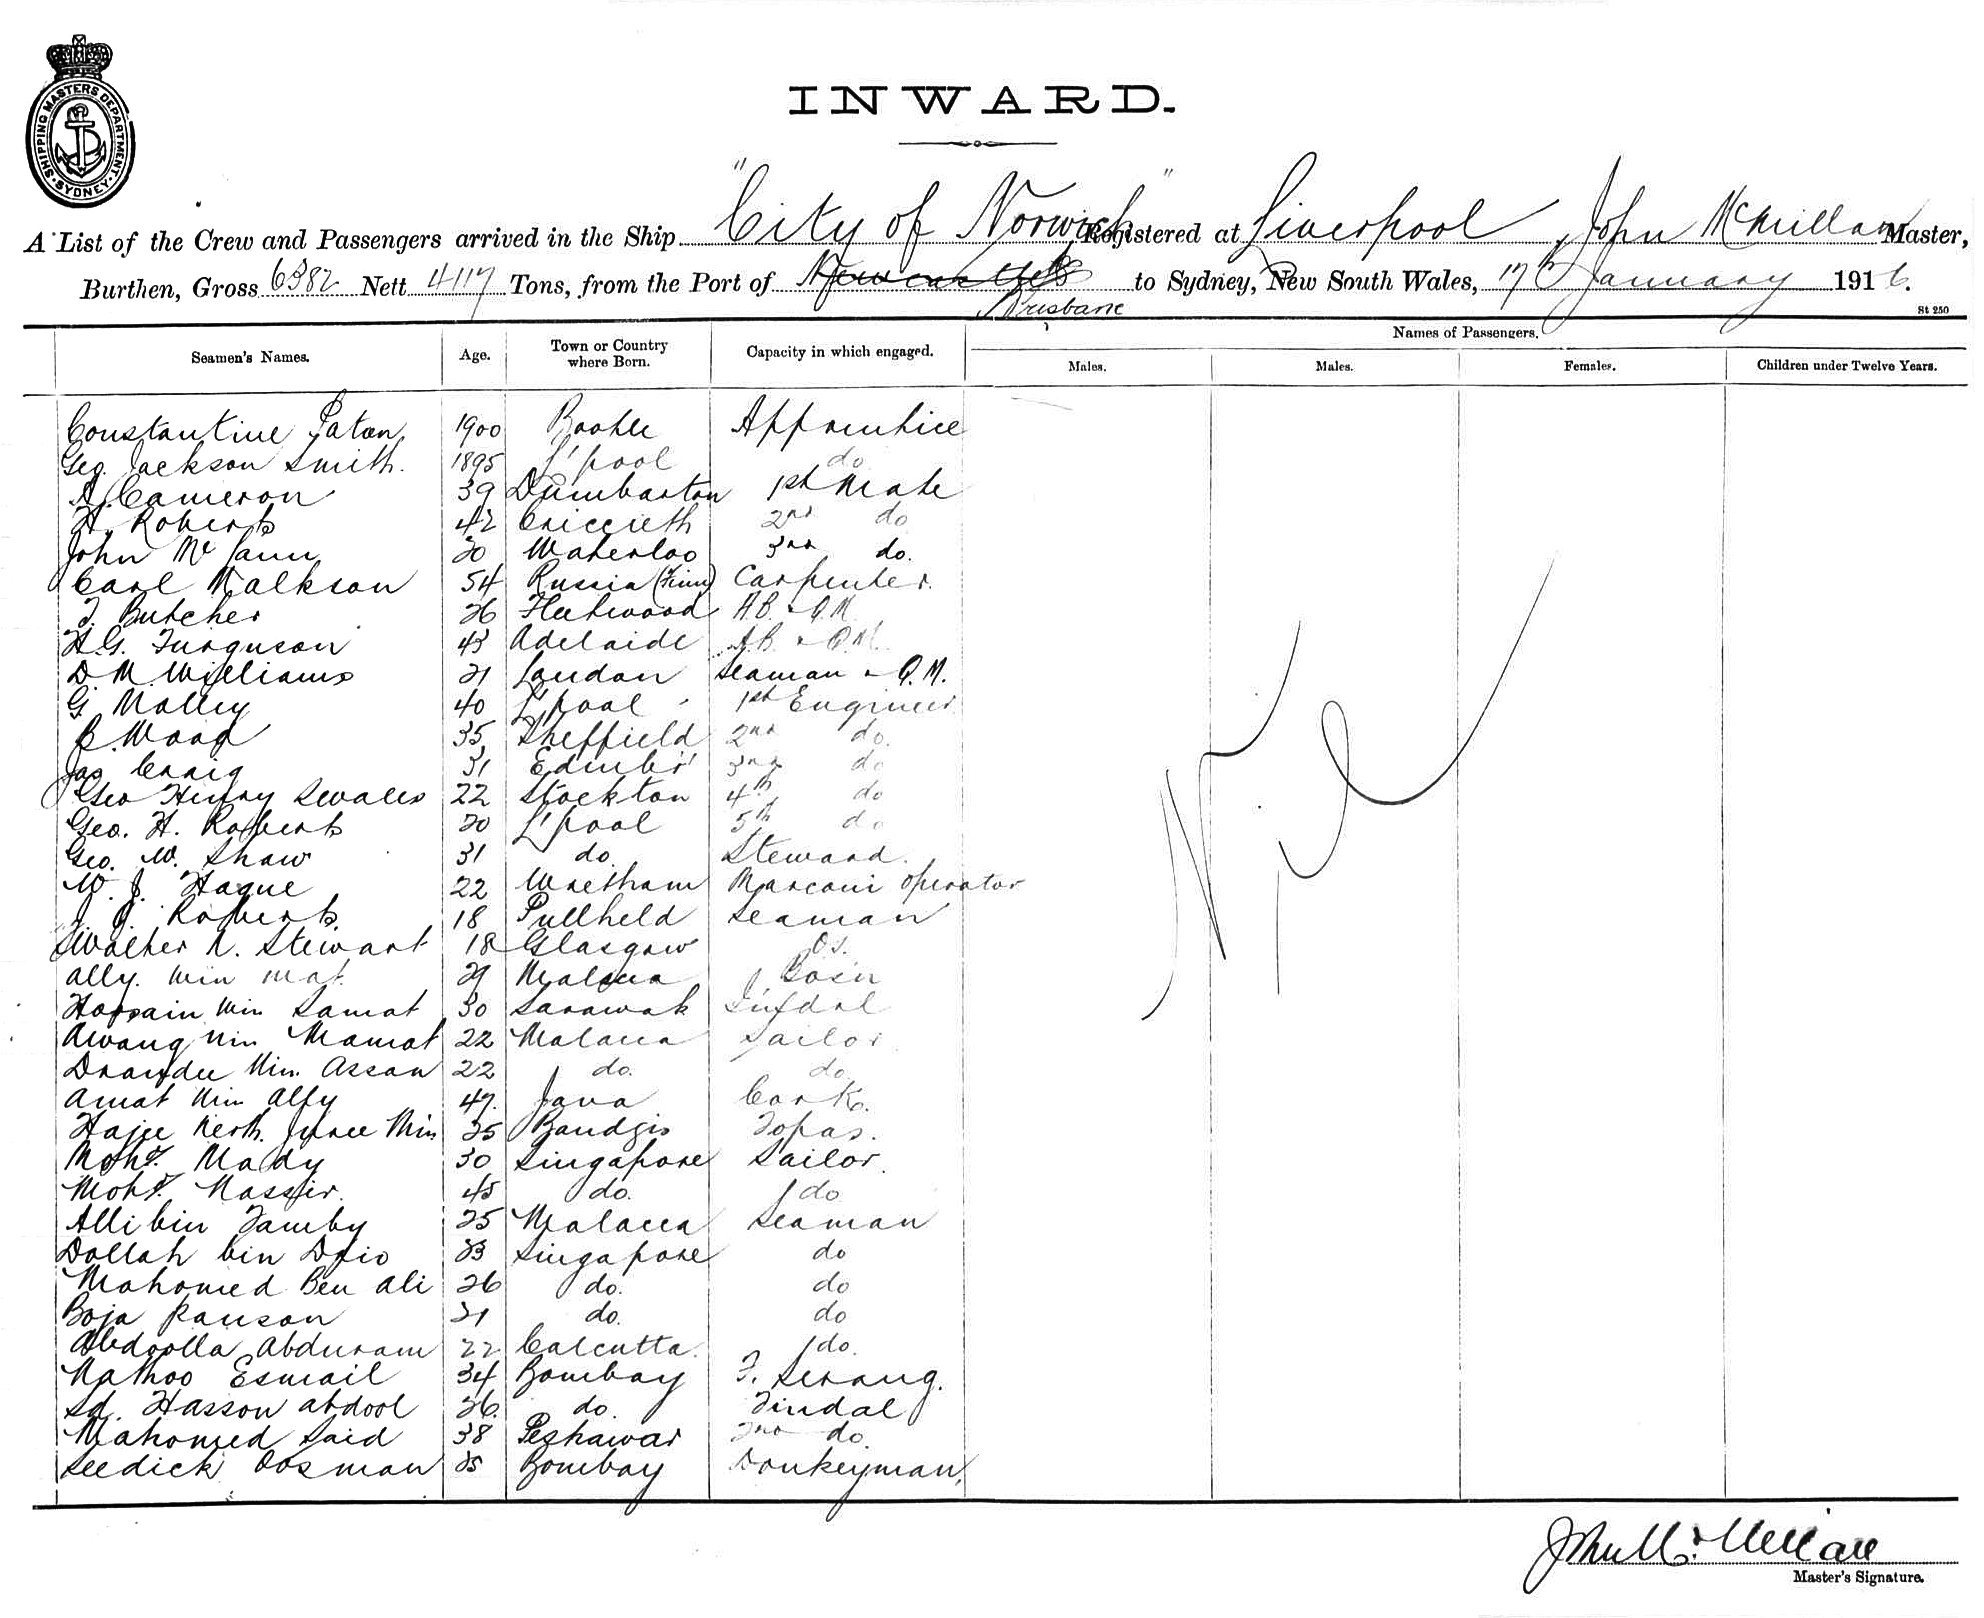 SHIPPING MASTERS DEPARTMENT. SYDNEY.
INWARD.
A List of the Crew and Passengers arrived in the Ship "City of Norwich" Registered at Liverpool, John McMillan Master,
Burthen, Gross 6382 Nett 4117 Tons, from the Port of Brisbane to Sydney, New South Wales, 17th January 1916.
St 250
Seamen's Names. Age. Town or Country where Born. Capacity in which engaged. Names of Passengers.
Males. Males. Females. Children under Twelve Years.
Constantine Paton 1900 Bootle Apprentice
Geo. Jackson Smith. 1895 L'pool do
D. Cameron 39 Dumbarton 1st Mate
H. Roberts 42 Criccieth 2nd do
John McCann 30 Waterloo 3rd do.
Carl Malkson 54 Russia (Finn) Carpenter.
T. Butcher 26 Fleetwood A.B. & Q.M.
H.G. Furguson 43 Adelaide A.B. & Q.M.
D. M. Williams 21 London Seaman & Q.M.
G. Malley 40 L'pool 1st Engineer
B. Wood 35 Sheffield 2nd do.
Jas Craig 31 Edinbr' 3rd do
Geo Henry Swales 22 Stockton 4th do
Geo. H. Roberts 30 L'pool 5th do
Geo. W. Shaw 31 do. Steward.
W. J. Hague 22 Wretham Marconi operator
J. J. Roberts. 18 Pullheld Seaman
Walter N. Stewart 18 Glasgow O.S.
Ally. Min Mat. 29 Malacca Bos'n
Hossain Min Samat 30 Sarawak Tindal
Awang Min Mamat 22 Malacca Sailor
Min. Assan 22 do. do.
Amat Min Ally 47. Java Cook.
Min 35 Topas.
Moht. Mady 30 Singapore Sailor.
Moht. Nassir. 45 do. do
Alli bin Tamby 25 Malacca Seaman
Dollah bin 33 Singapore do
Mahomed Ben Ali 26 do. do
Boja Ranson 31 do. do
Abdoolla Abduram 22 Calcutta. do.
Nathoo Esmail 34 Bombay F. Serang.
Sd. Hasson Abdool 36. do. Tindal
Mahomed Said 38 Peshawar 2nd do.
Seedick Oosman 35 Bombay Donkeyman.
Nil
John McMillan
Master's Signature.